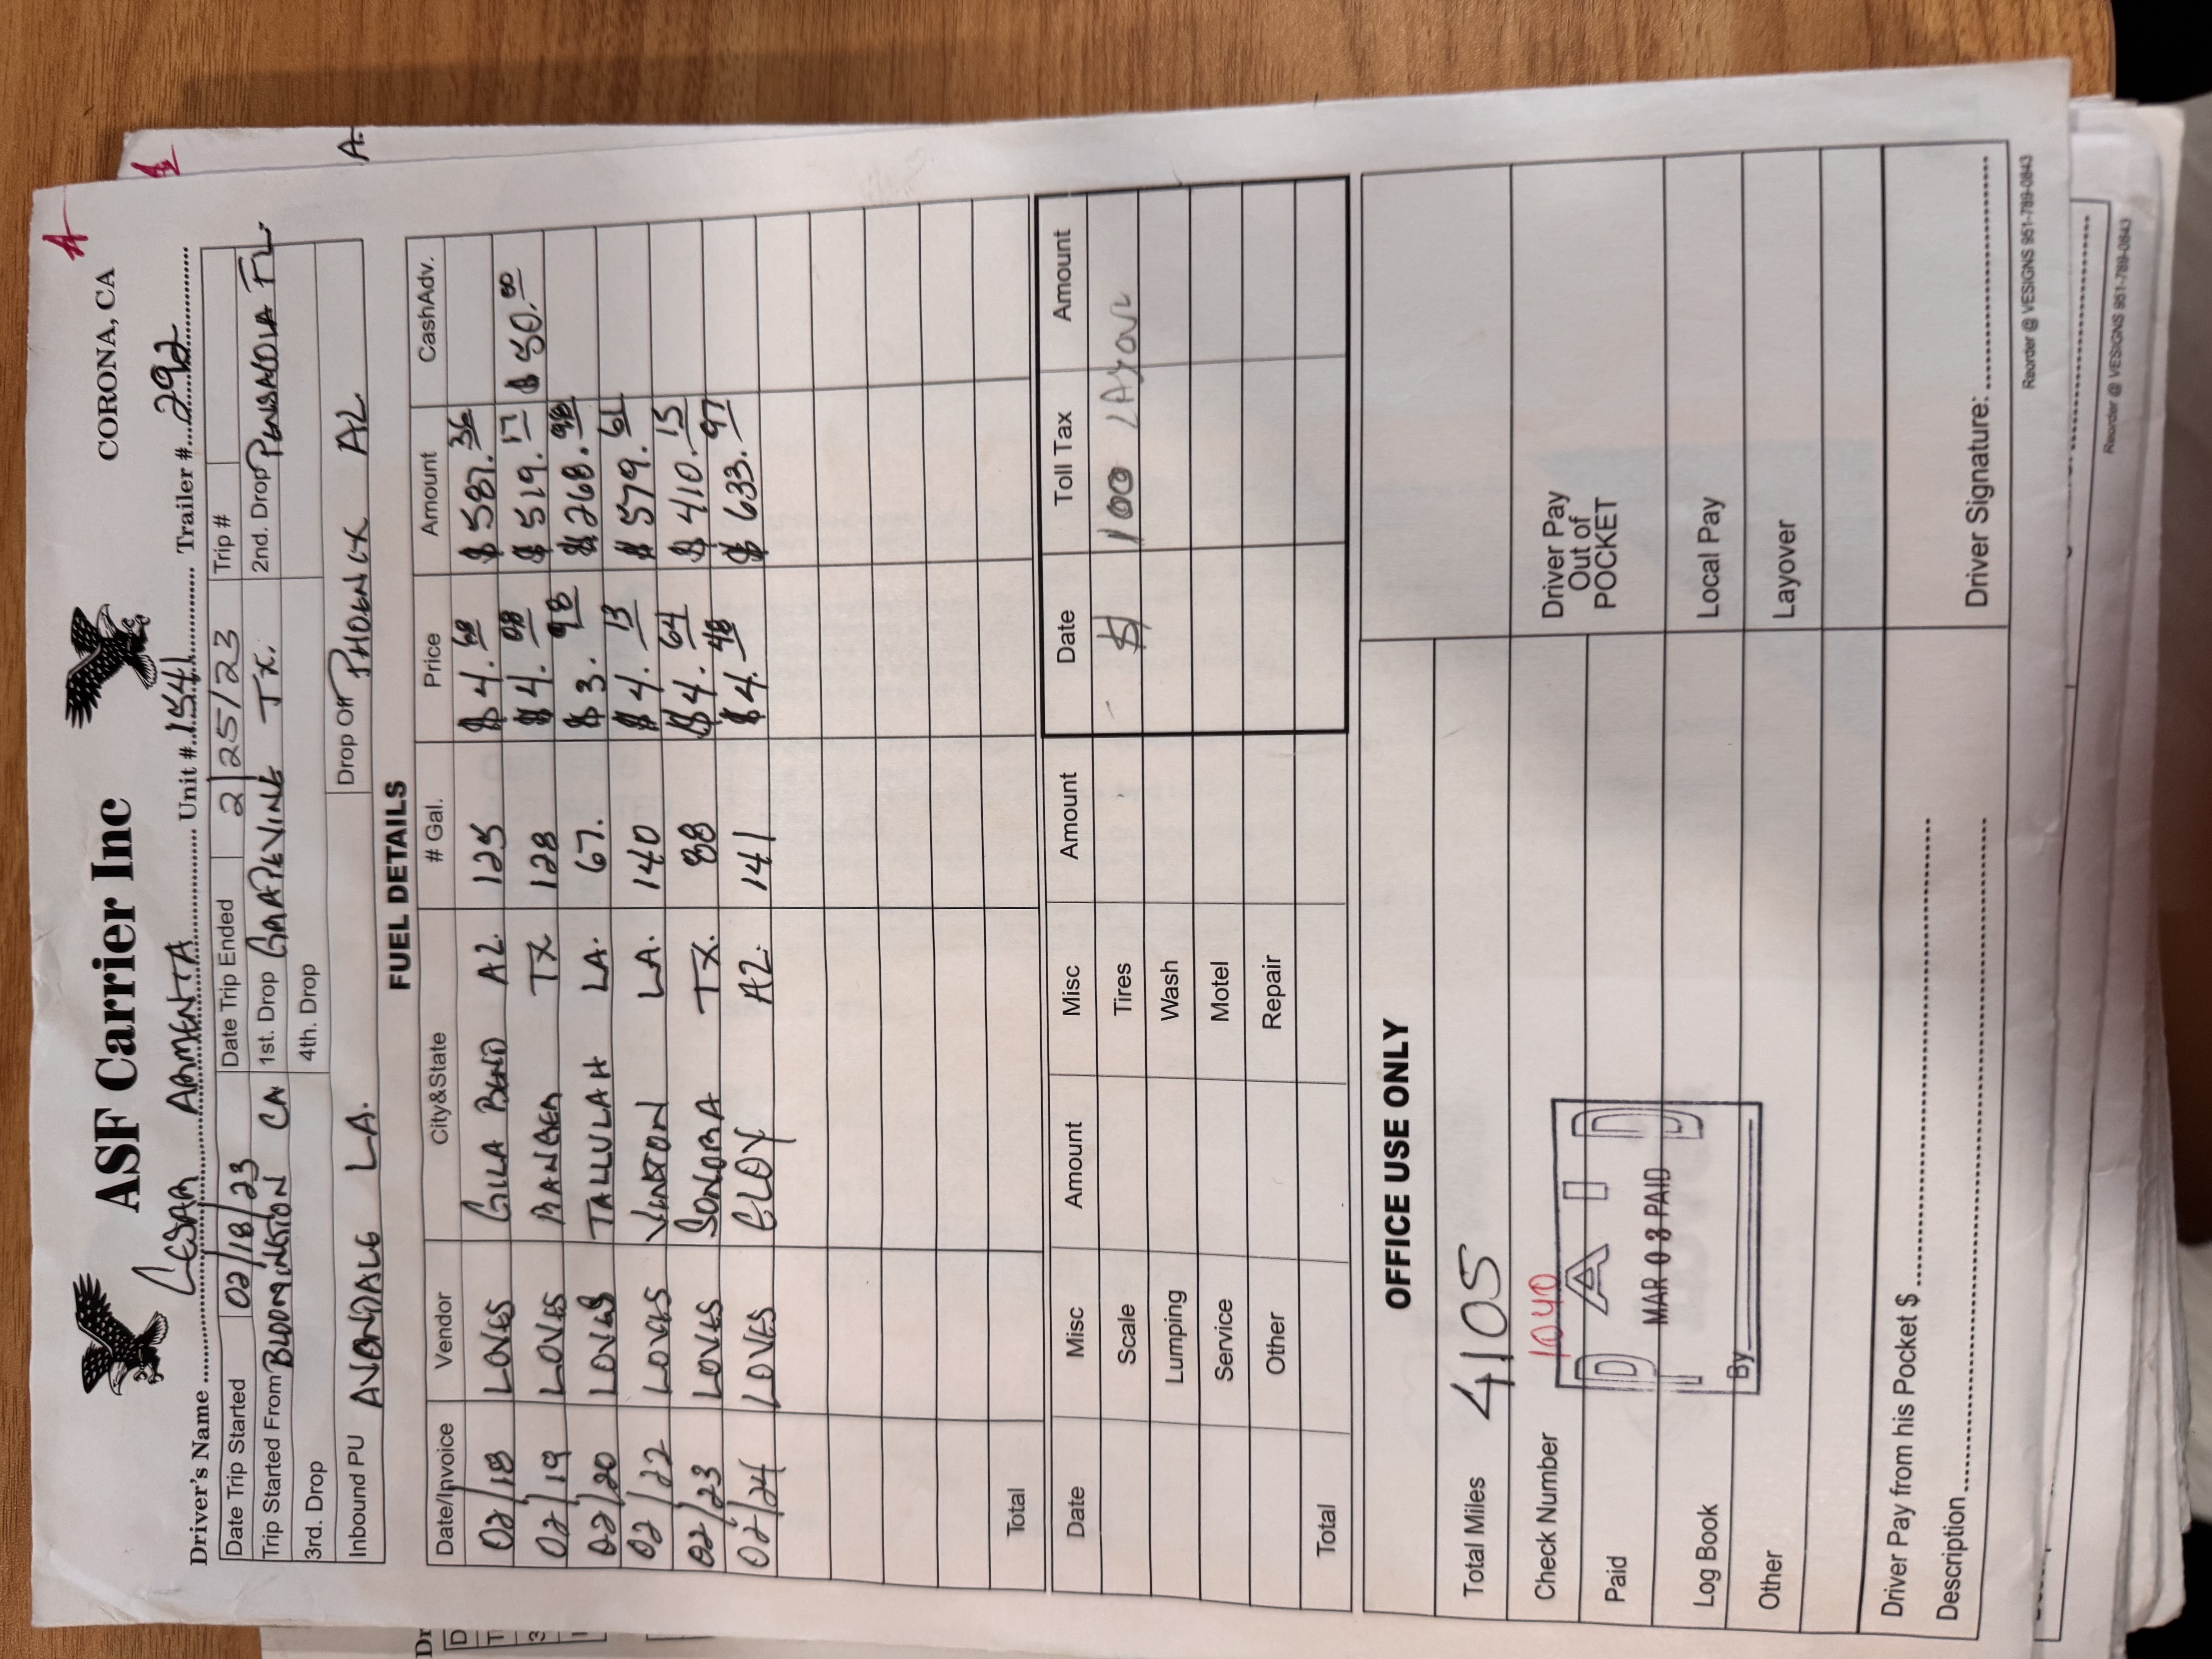 A
ASF Carrier Inc
CORONA, CA
Driver's Name CESAR ARMENTA Unit # 1541 Trailer # 292
Date Trip Started 02/18/23 Date Trip Ended 2/25/23 Trip #
Trip Started From BLOOMINGTION CA 1st. Drop GRAPEVINE TX. 2nd. Drop PENSACOLA FL.
3rd. Drop 4th. Drop
Inbound PU AVONDALE LA. Drop Off PHOENIX AZ
FUEL DETAILS
Date/Invoice Vendor City&State # Gal. Price Amount CashAdv.
02/18 LOVES GILA BEND AZ. 125 $4.68 $587.36
02/19 LOVES RANGER TX 128 $4.08 $519.17 $50.00
02/20 LOVES TALLULAH LA. 67. $3.98 $268.98
02/22 LOVES VINTON LA. 140 $4.13 $579.61
02/23 LOVES SONORA TX. 88 $4.64 $410.15
02/24 LOVES ELOY AZ. 141 $4.48 $633.97
Total
Date Misc Amount Misc Amount Date Toll Tax Amount
Scale Tires $ 100 LAYOVR
Lumping Wash
Service Motel
Other Repair
Total
OFFICE USE ONLY
Total Miles 4105
Check Number 1040
Driver Pay Out of POCKET
Paid
PAID
MAR 03 PAID
By
Log Book
Local Pay
Other
Layover
Driver Pay from his Pocket $
Description
Driver Signature:
Reorder @ VESIGNS 951-789-0843
Reorder @ VESIGNS 951-789-0843